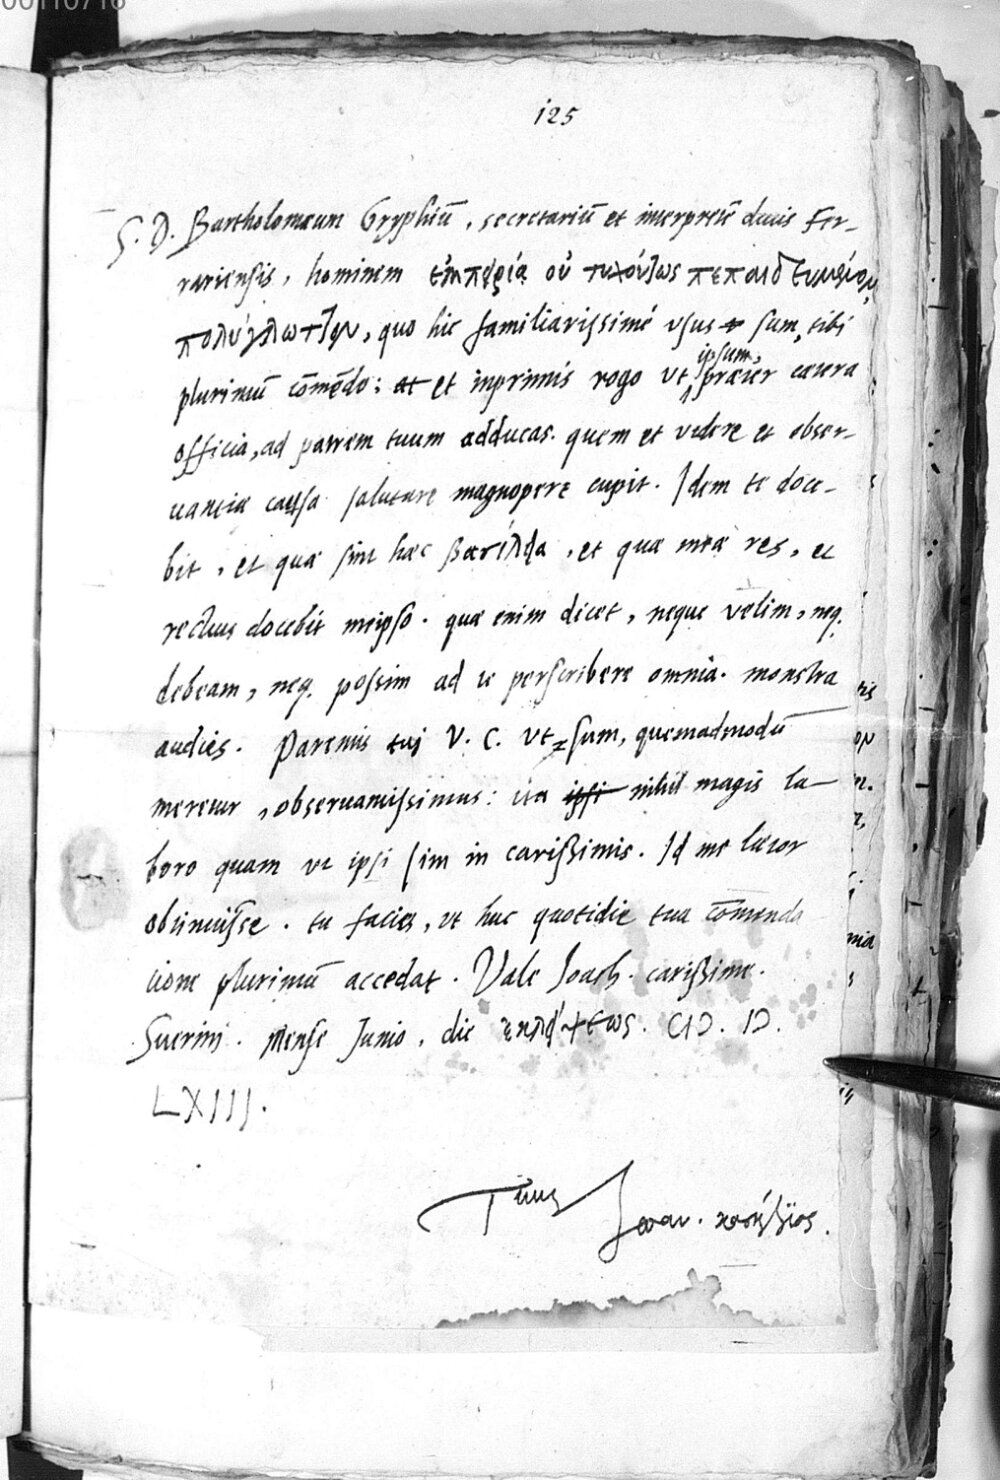 00110716
125
S. D. Bartholomæum Gryphiū, secretariū et interpretē ducis Fer-
rariensis, hominem ἐμπειρίᾳ οὐ τυχόντως πεπαιδευμένον
πολύγλωττον, quo hic familiarissimè usus sum, tibi
plurimū cōmēdo: et et inprimis rogo ut ipsum, præter cætera
officia, ad patrem tuum adducas. quem et videre et obser-
uantiæ causa salutare magnopere cupit. Idem te doce-
bit, et quæ sint hæc, et quæ meæ res, et
rectius docebit meipso. quæ enim dicet, neque velim, neq.
debeam, neq. possim ad te perscribere omnia. monstra
audies. Parentis tui V. C. ut sum, quemadmodū
meretur, obseruantissimus: ita ipsi nihil magis la-
boro quam ut ipsi sim in carißimis. Id me lætor
obtinuisse. tu facies, ut huc quotidie tua cōmenda
tione plurimū accedat. Vale Ioach. carißime.
Suerini. Mense Junio, die CIƆ. IƆ.
LXIII.
Tuus Joan.